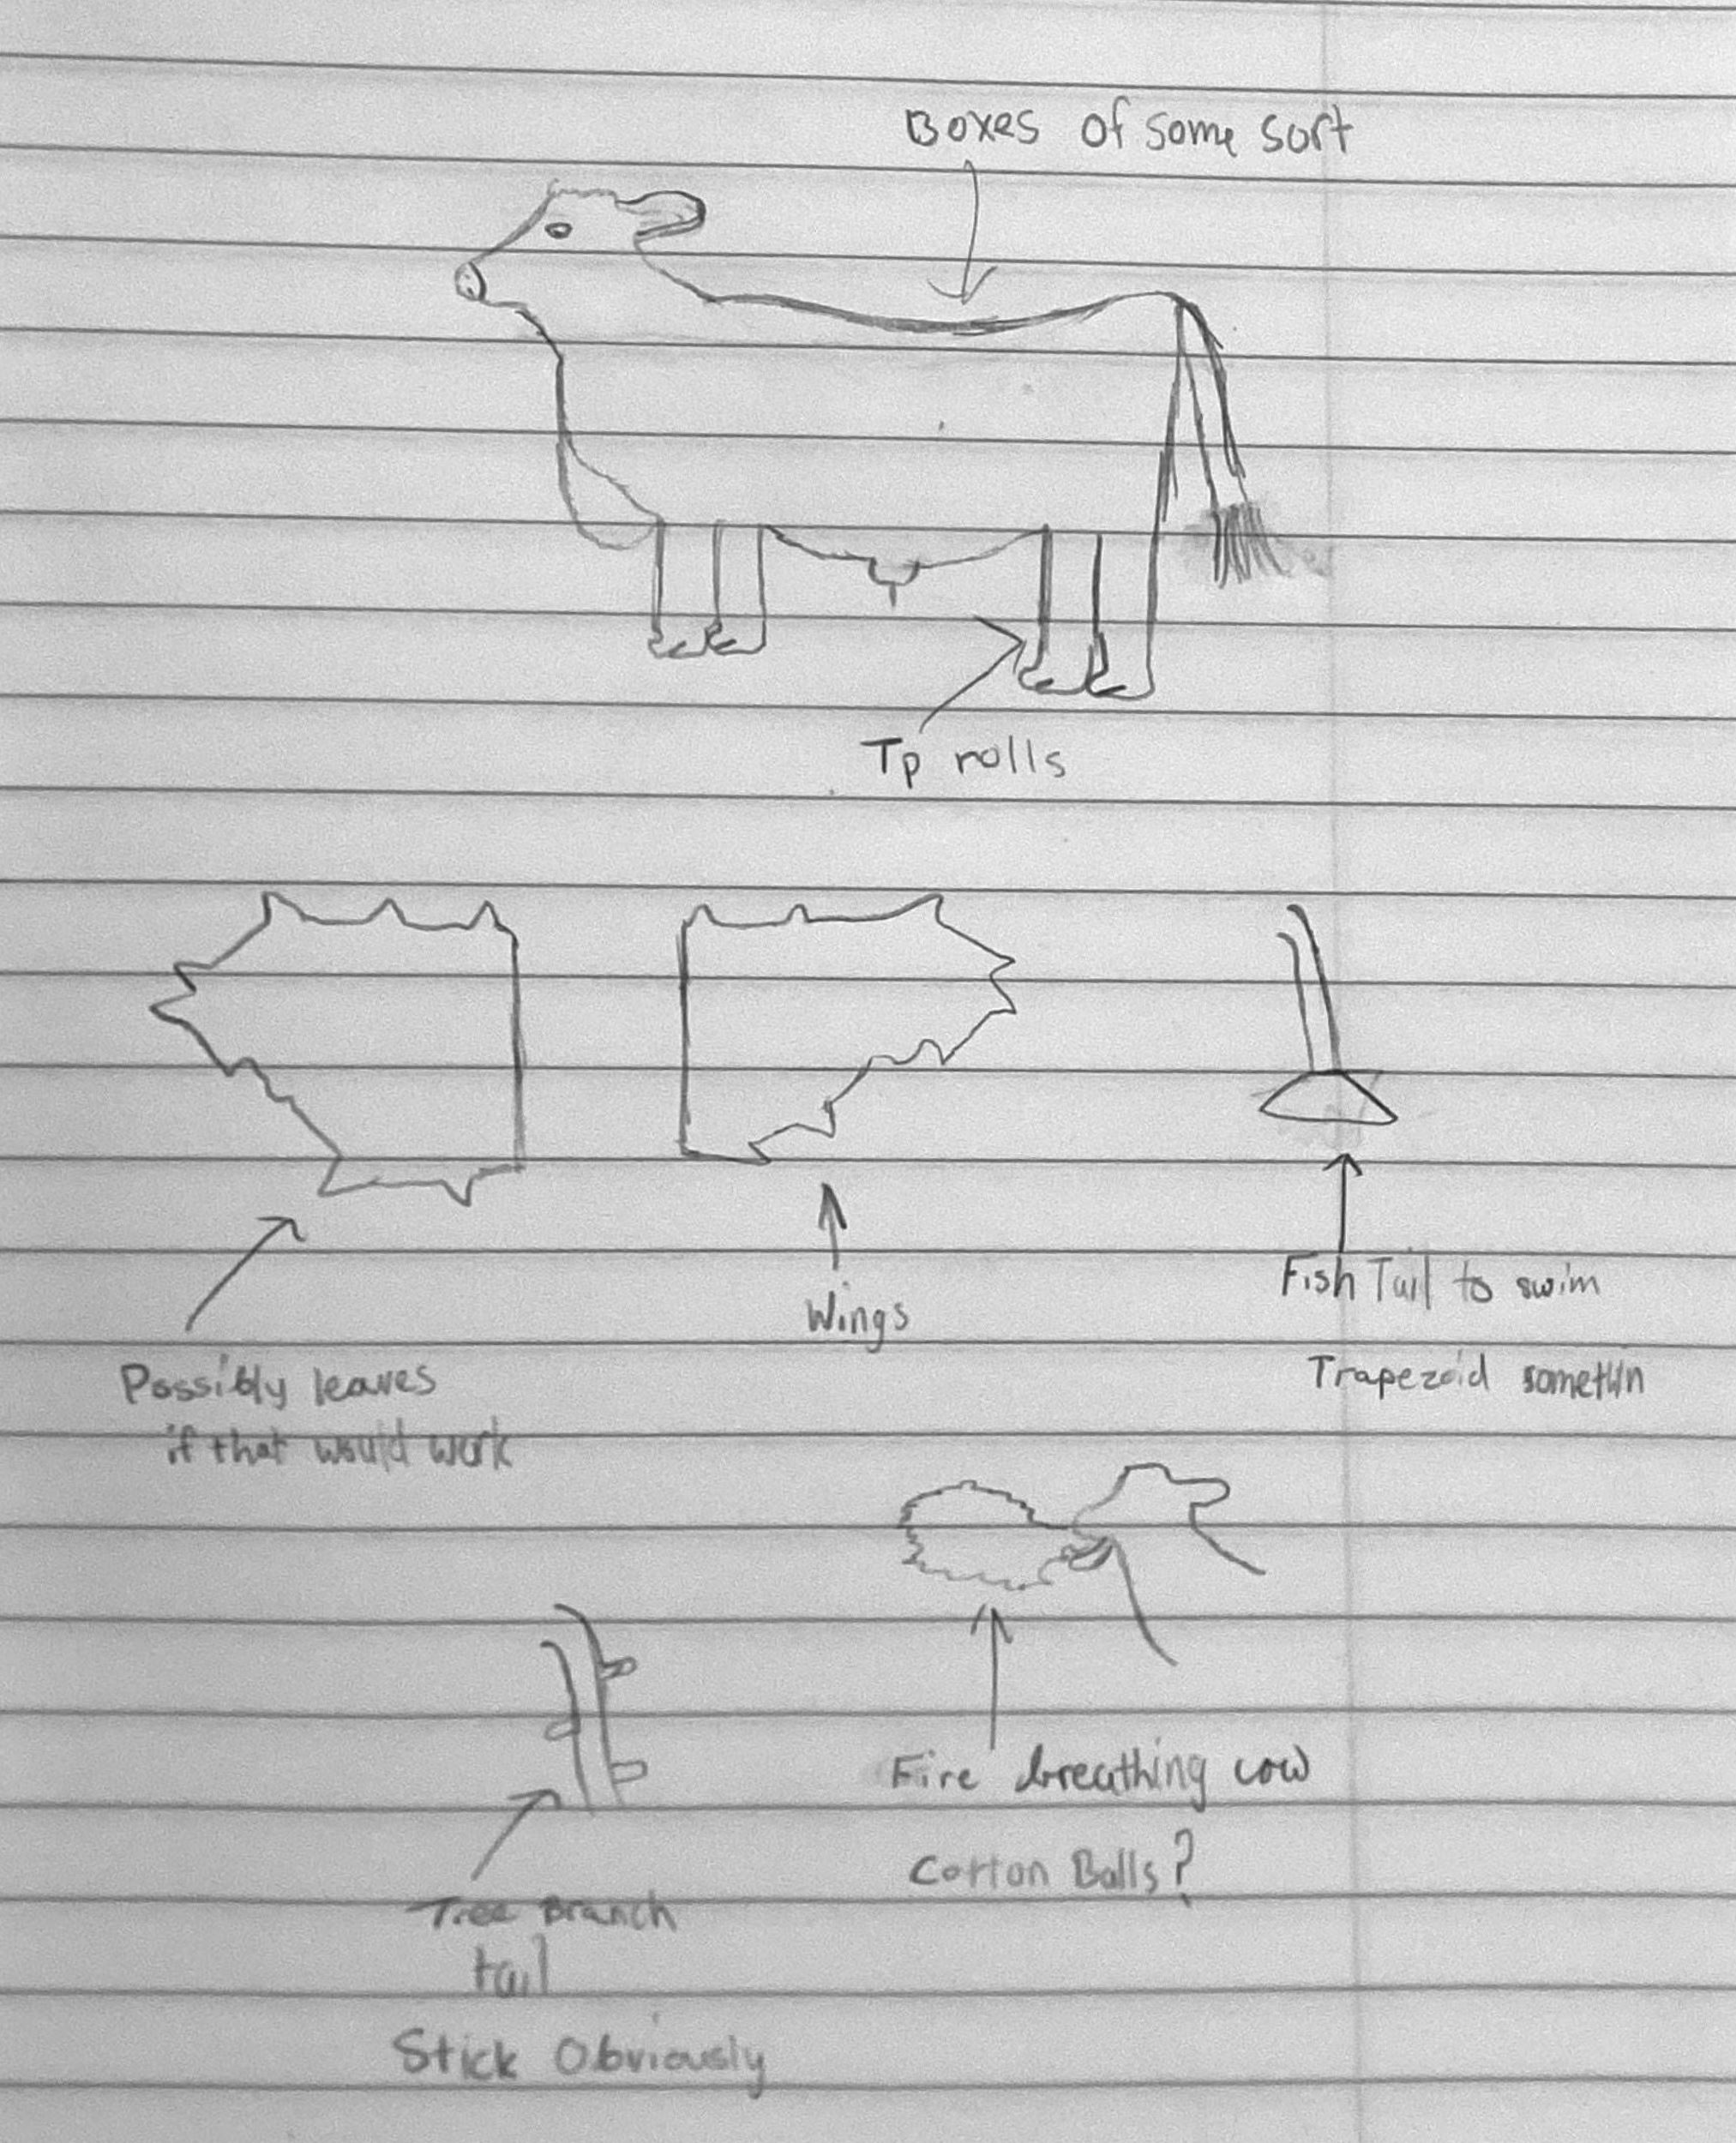 Boxes of some sort
Tp rolls
Wings
Fish Tail to swim
Possibly leaves
if that would work
Trapezoid somethin
Fire breathing cow
Cotton Balls?
Tree Branch
tail
Stick Obviously